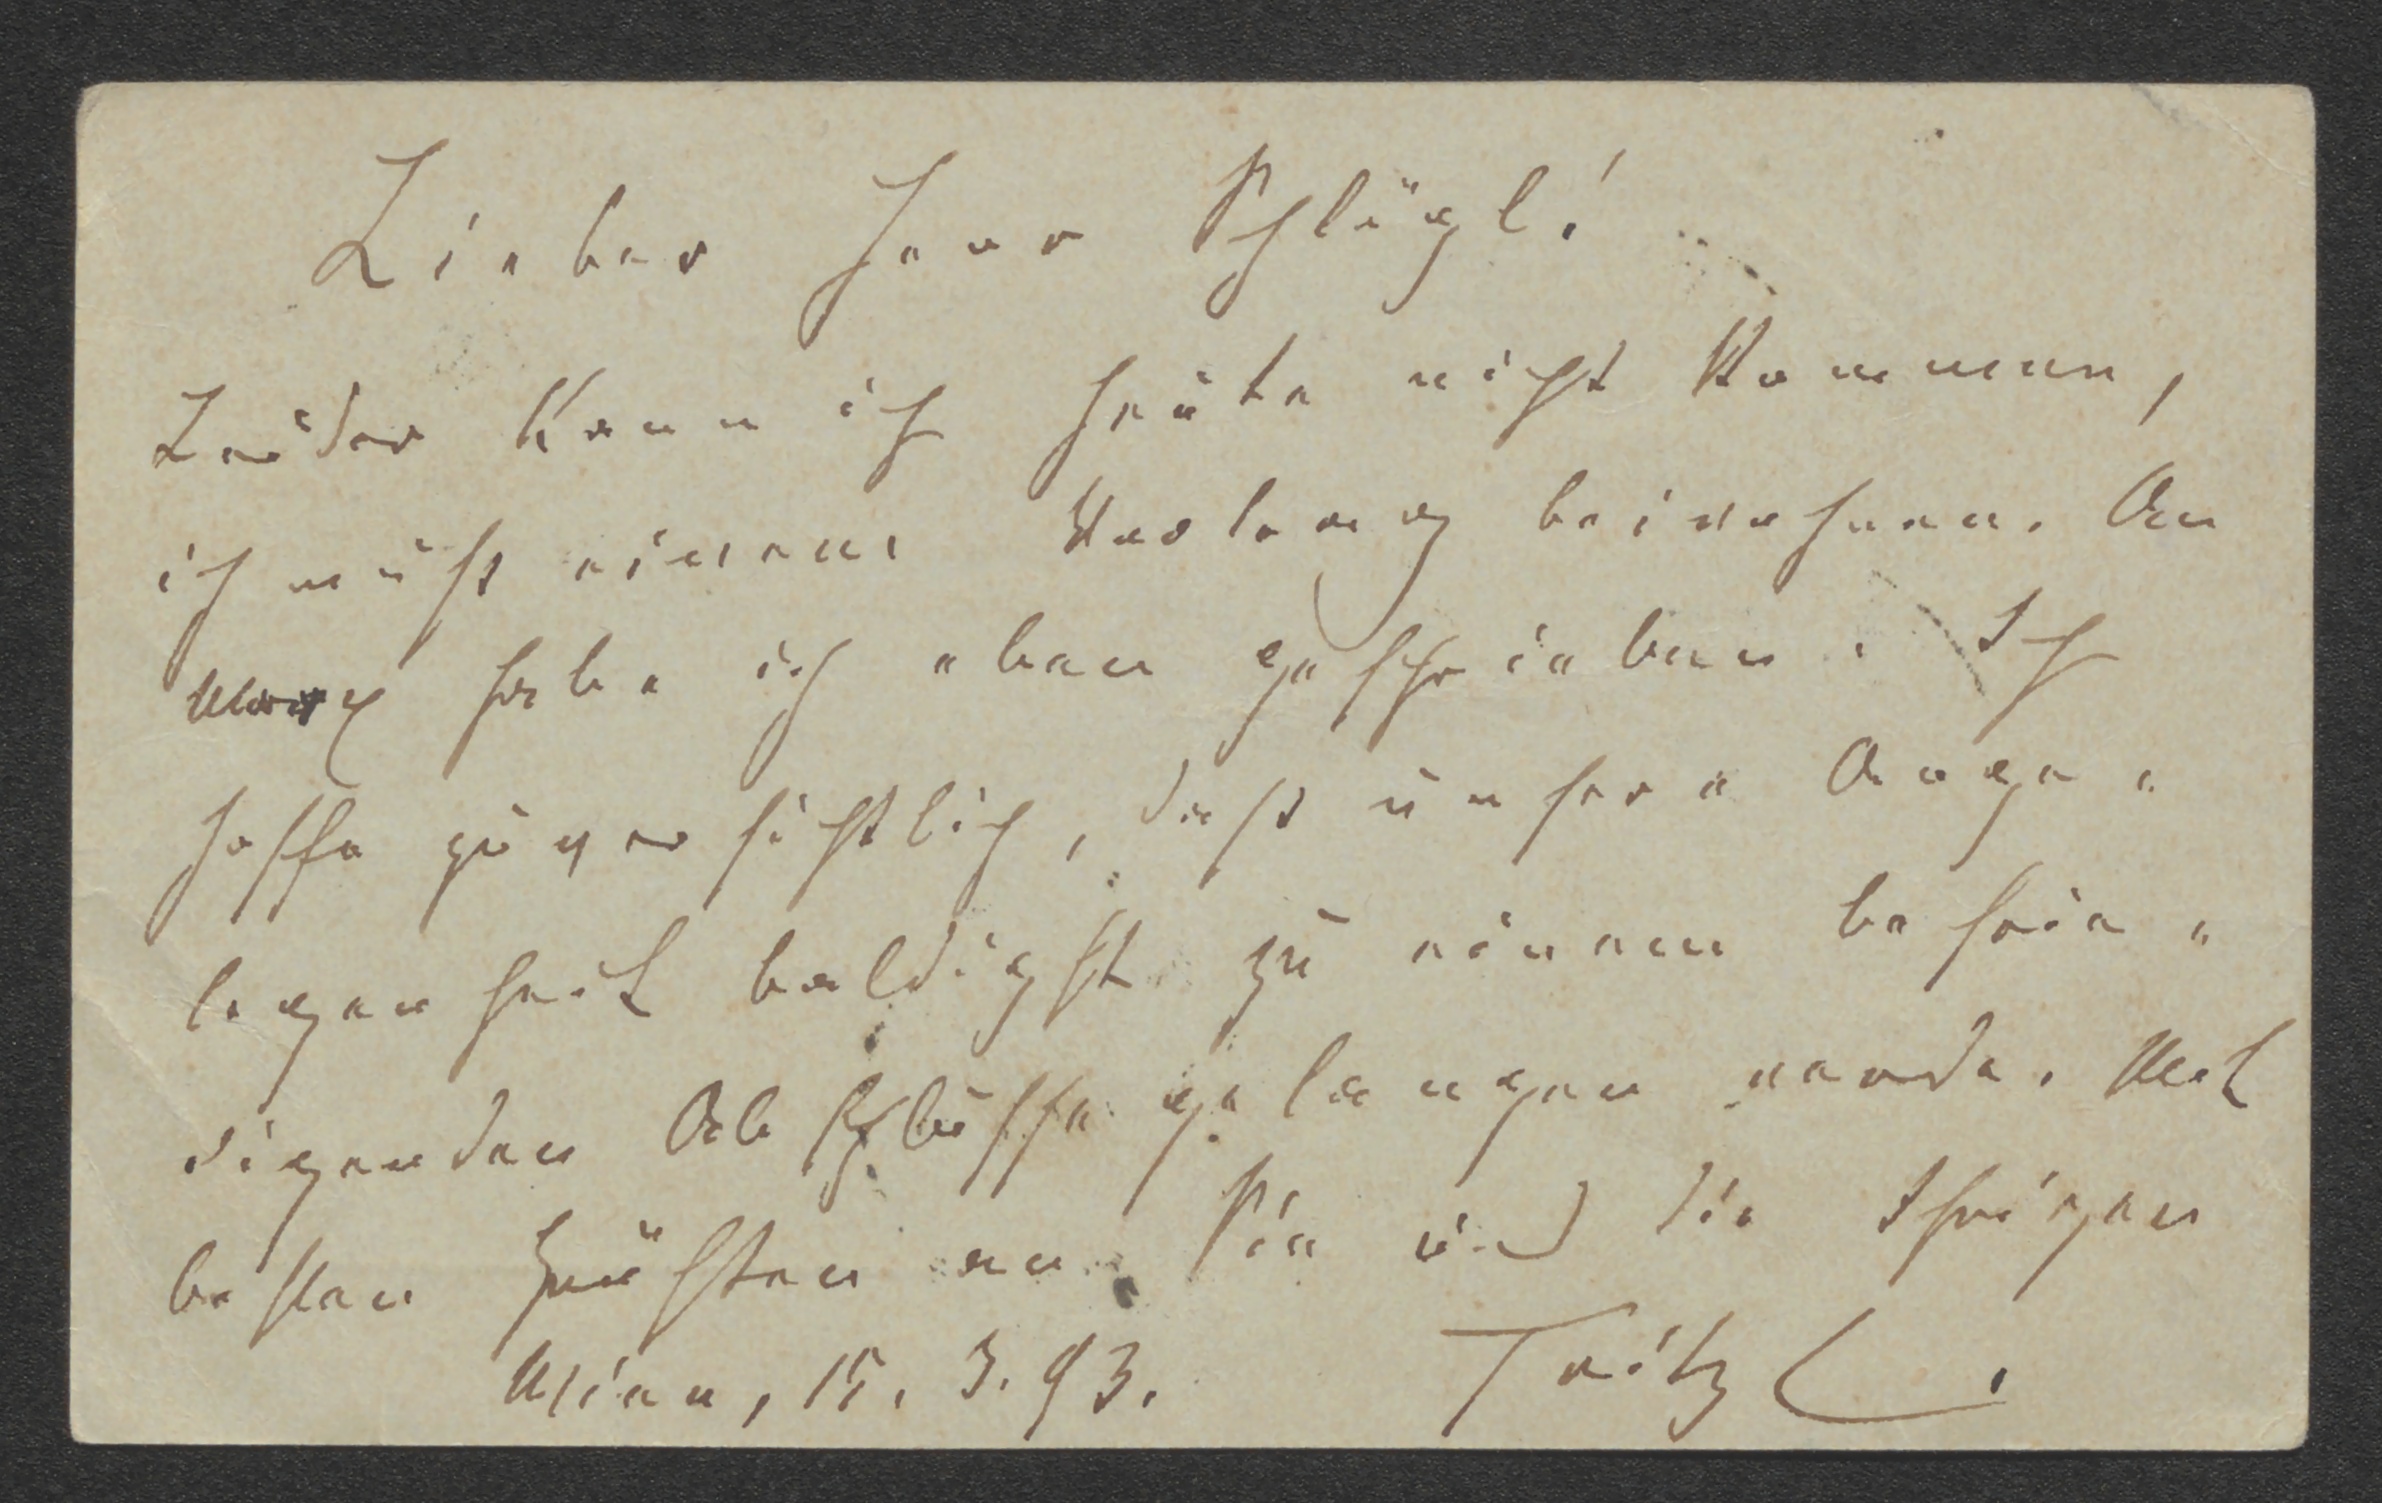 Lieber Herr Schlögl!
Leider kann ich heute nicht kommen,
ich muß einem Vortrag beiwohnen. An
Marx habe ich eben geschrieben. Ich
hoffe zuversichtlich, daß unsere Ange-
legenheit baldigst zu einem befrie-
digenden Abschlusse gelangen werde. Mit
besten Grüßen an Sie und die Ihrigen
Wien, 15. 3. 93. Fritz L.